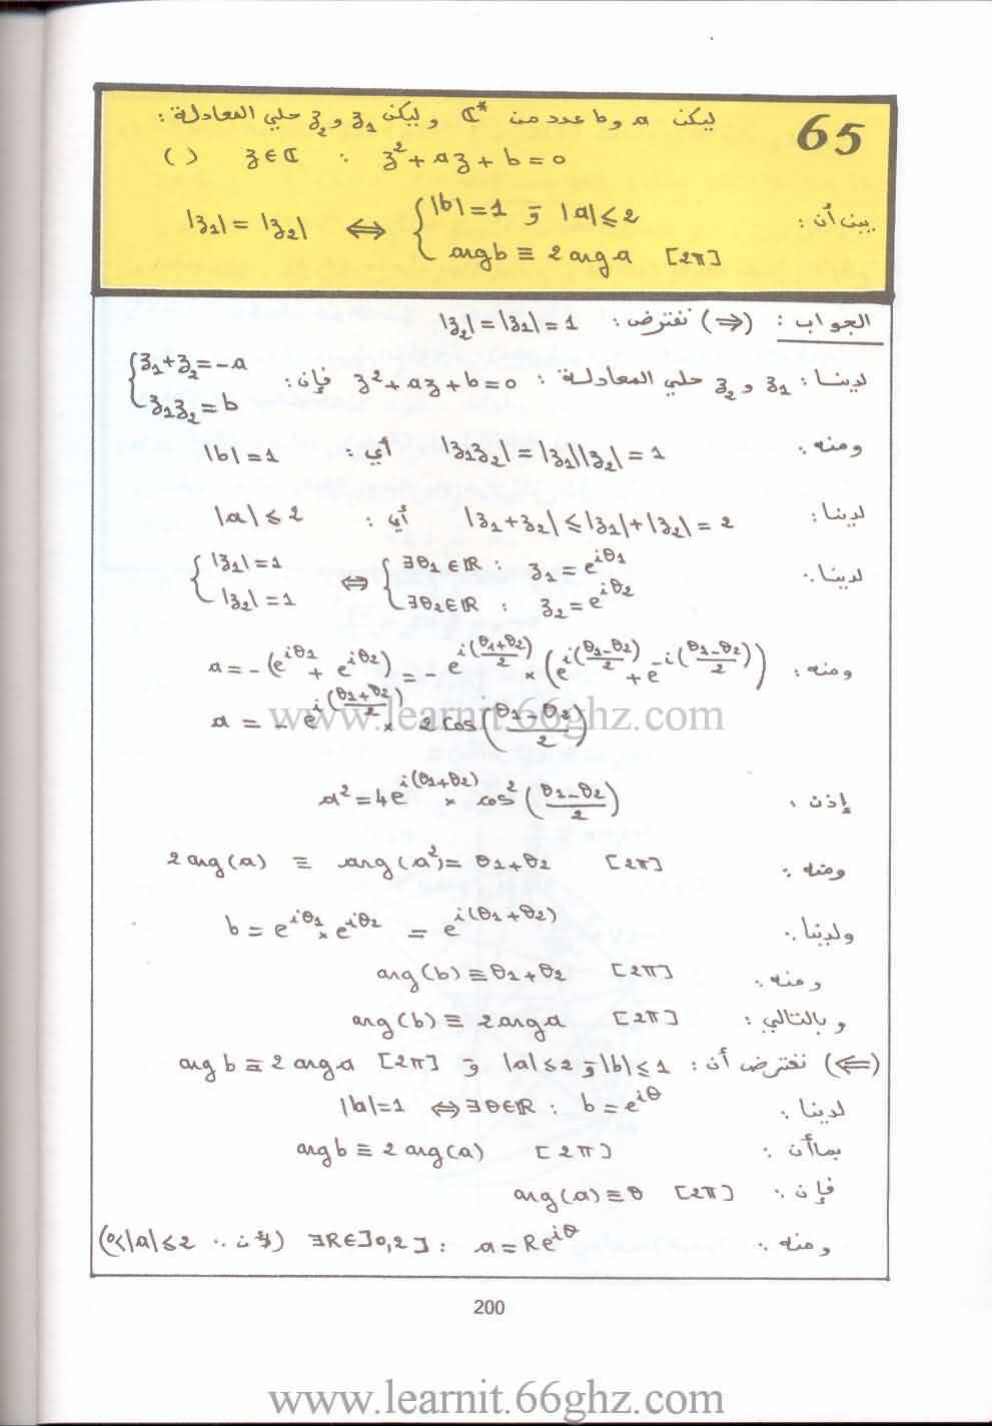 65
ليكن a و b عددين من ℂ* و ليكن z₁ و z₂ حلي المعادلة :
z ∈ ℂ : z² + az + b = 0 ( )
يبين أن : |z₁| = |z₂| ⇔ { |b| = 1 و |a| ⩽ 2
arg b ≡ 2 arg a [2π]
الجواب : (⇒) نفترض : |z₂| = |z₁| = 1
لدينا : z₁ و z₂ حلي المعادلة : z² + az + b = 0 فإن : { z₁ + z₂ = -a
z₁z₂ = b
ومنه : |z₁z₂| = |z₁||z₂| = 1 أي : |b| = 1
لدينا : |z₁ + z₂| ⩽ |z₁| + |z₂| = 2 أي : |a| ⩽ 2
لدينا : { |z₁| = 1 ⇔ { ∃θ₁ ∈ ℝ : z₁ = e^{iθ₁}
|z₂| = 1 ∃θ₂ ∈ ℝ : z₂ = e^{iθ₂}
ومنه : a = -(e^{iθ₁} + e^{iθ₂}) = -e^{i(θ₁+θ₂)/2} × (e^{i(θ₁-θ₂)/2} + e^{-i(θ₁-θ₂)/2})
a = -e^{i(θ₁+θ₂)/2} × 2 cos((θ₁-θ₂)/2)
www.learnit.66ghz.com
إذن : a² = 4e^{i(θ₁+θ₂)} × cos²((θ₁-θ₂)/2)
ومنه : 2 arg(a) ≡ arg(a²) = θ₁ + θ₂ [2π]
ولدينا : b = e^{iθ₁} × e^{iθ₂} = e^{i(θ₁+θ₂)}
ومنه : arg(b) ≡ θ₁ + θ₂ [2π]
و بالتالي : arg(b) ≡ 2 arg a [2π]
(⇐) نفترض أن : |b| ⩽ 1 و |a| ⩽ 2 و arg b ≡ 2 arg a [2π]
لدينا : |b| = 1 ⇔ ∃θ ∈ ℝ : b = e^{iθ}
بماأن : arg b ≡ 2 arg(a) [2π]
فإن : arg(a) ≡ θ [2π]
ومنه : ∃R ∈ ]0,2] : a = Re^{iθ} (لأن : 0<|a| ⩽ 2)
200
www.learnit.66ghz.com